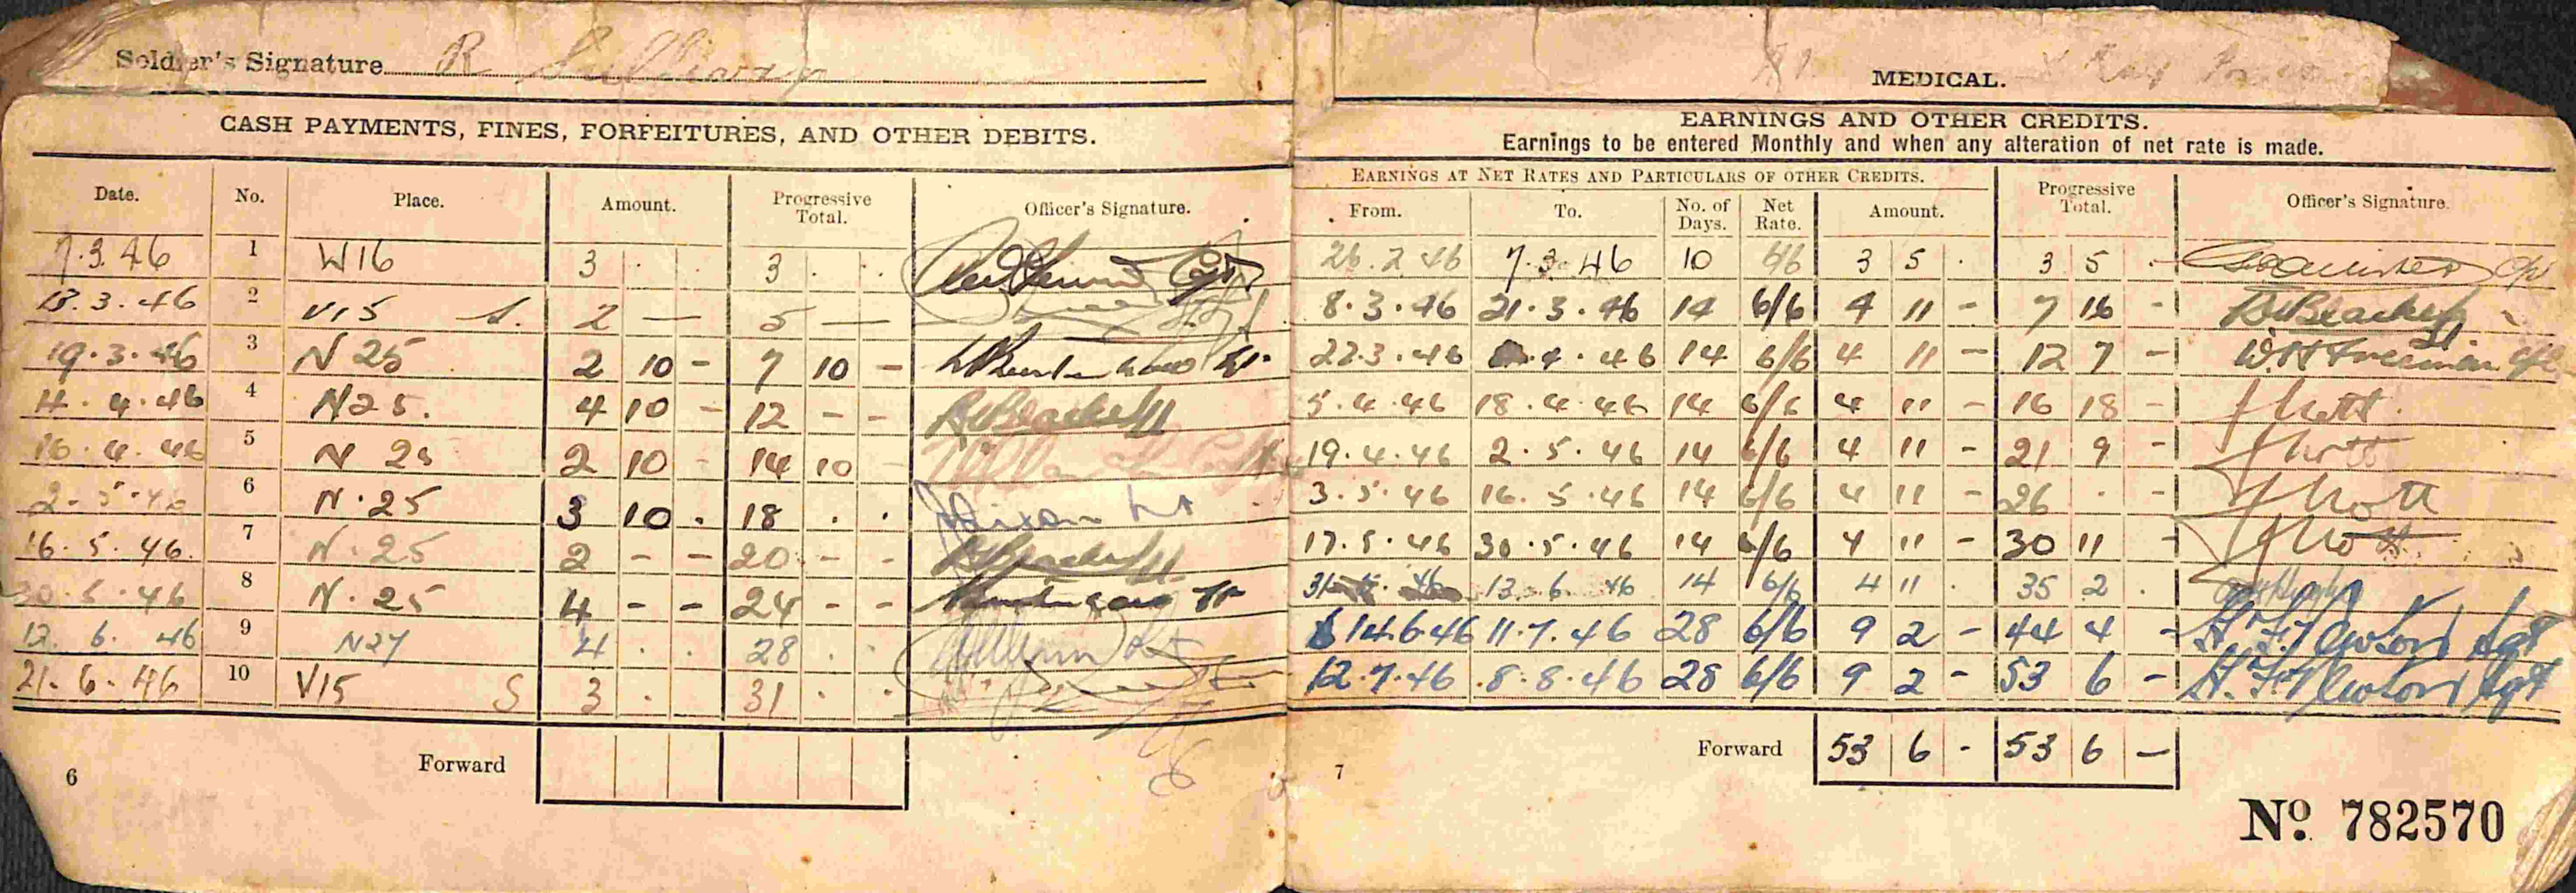 Soldier's Signature R Sullivan
CASH PAYMENTS, FINES, FORFEITURES, AND OTHER DEBITS.
Date. No. Place. Amount. Progressive Total. Officer's Signature.
7.3.46 1 W16 3 . . 3 . .
13.3.46 2 V15 S. 2 — 5 —
19.3.46 3 N 25 2 10 - 7 10 -
4.4.46 4 N25. 4 10 - 12 - -
16.4.46 5 N 25 2 10 - 14 10 -
2.5.46 6 N.25 3 10 . 18 . .
16.5.46. 7 N.25 2 - - 20 - -
30.5.46 8 N.25 4 - - 24 - -
12.6.46 9 N27 4 . . 28 . .
21.6.46 10 V15 S 3 . 31 . .
Forward
6
MEDICAL.
EARNINGS AND OTHER CREDITS.
Earnings to be entered Monthly and when any alteration of net rate is made.
EARNINGS AT NET RATES AND PARTICULARS OF OTHER CREDITS. Progressive Total. Officer's Signature.
From. To. No. of Days. Net Rate. Amount.
26.2.46 7.3.46 10 6/6 3 5 . 3 5 .
8.3.46 21.3.46 14 6/6 4 11 - 7 16 -
22.3.46 4.46 14 6/6 4 11 - 12 7 - W.H Freeman
5.4.46 18.4.46 14 6/6 4 11 - 16 18 -
19.4.46 2.5.46 14 6/6 4 11 - 21 9 -
3.5.46 16.5.46 14 6/6 4 11 - 26 . -
17.5.46 30.5.46 14 6/6 4 11 - 30 11 -
31 13.6.46 14 6/6 4 11 . 35 2 .
14.6.46 11.7.46 28 6/6 9 2 - 44 4 - Sgt
12.7.46 8.8.46 28 6/6 9 2 - 53 6 - Sgt
Forward 53 6 - 53 6 —
7
No. 782570